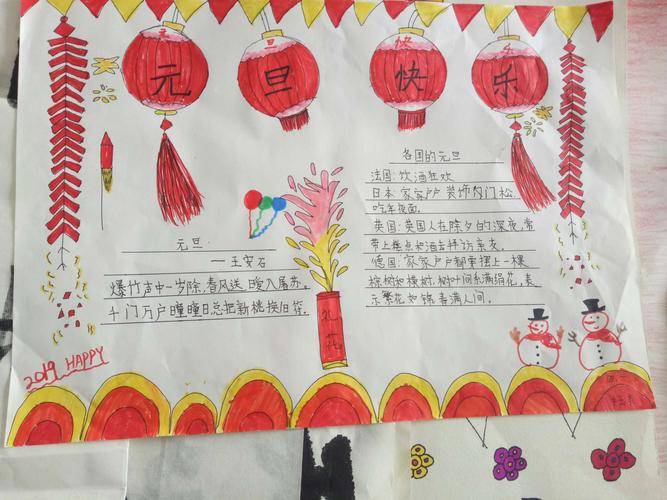 元旦快乐
元旦
——王安石
爆竹声中一岁除.春风送暖入屠苏.
千门万户曈曈日总把新桃换旧符.
2019 HAPPY
礼花
各国的元旦
法国:饮酒狂欢
日本 家家户户 装饰为门松,
吃年夜面.
英国:英国人在除夕的深夜,常
带上糕点和酒去拜访亲友.
德国:家家户户都要摆上一棵
枞树和横树.树叶间系满绢花,表
示繁花如锦春满人间.